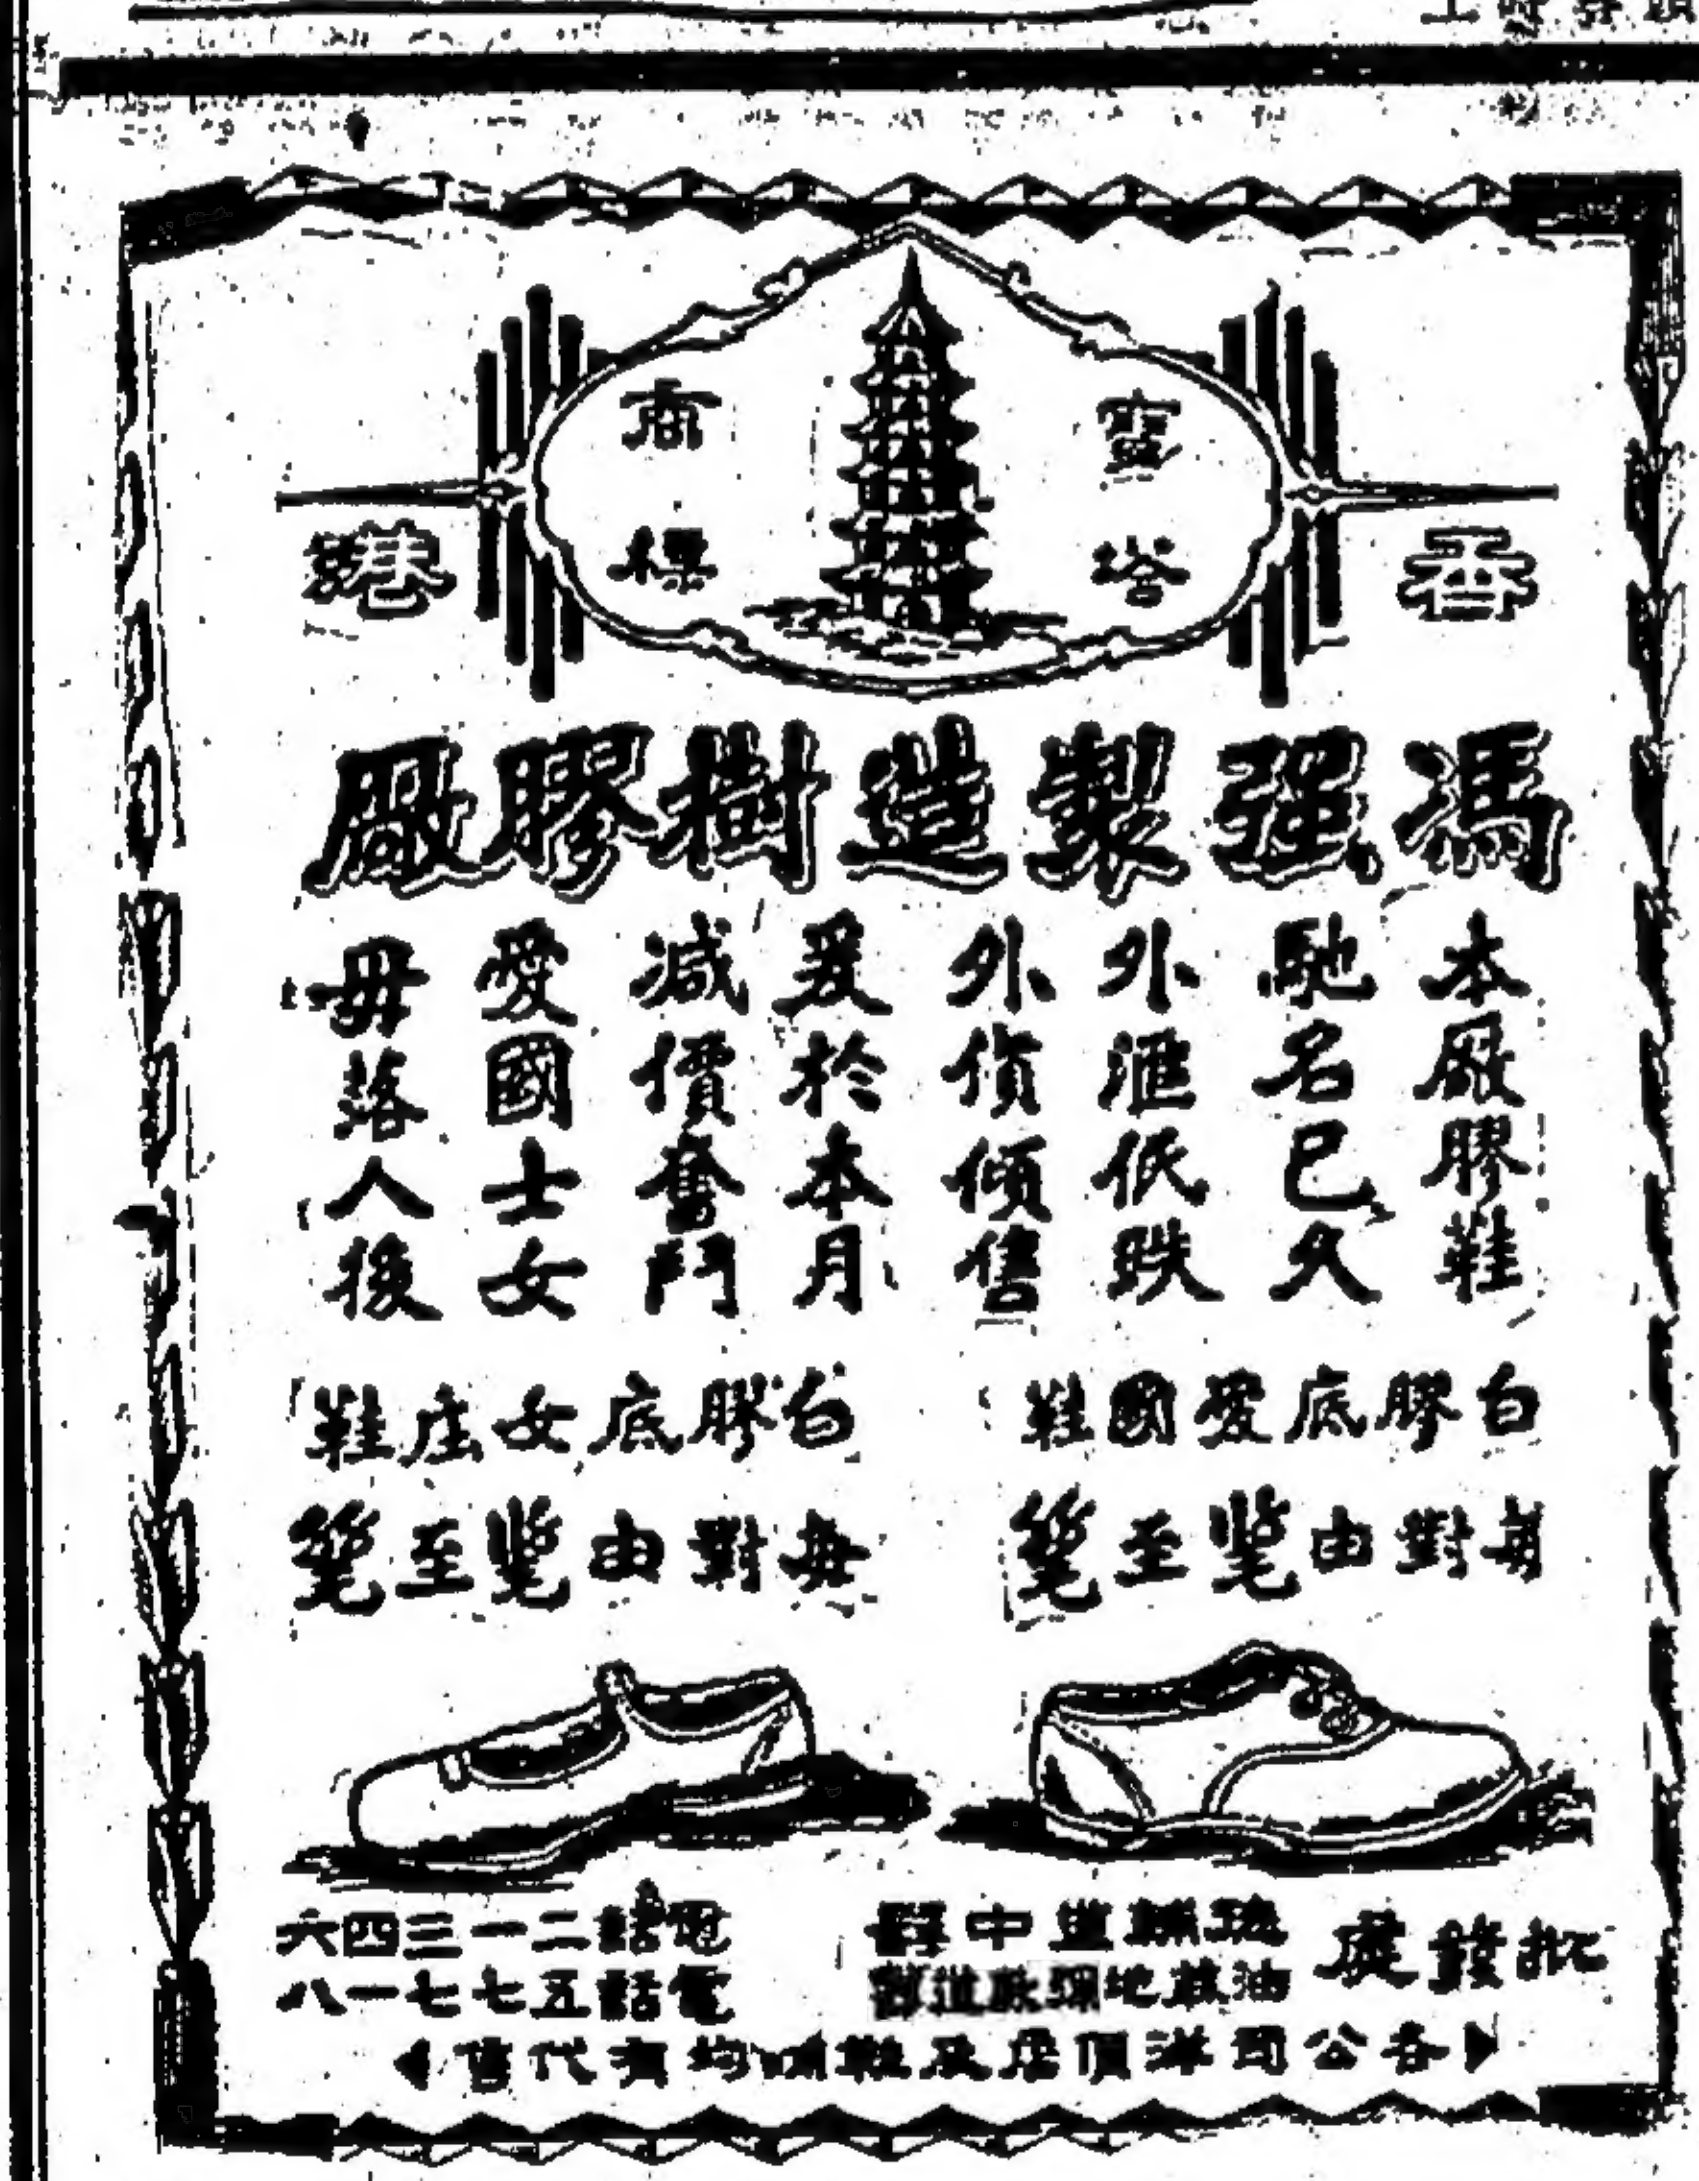 香港
寶塔
商標
馮强製造樹膠廠
本廠膠鞋
馳名已久
外滙低跌
外貨傾售
爰於本月
減價奮鬥
愛國士女
毋落人後
白膠底愛國鞋
每對由 至
白膠底女庄鞋
每對由 至
批發處
德輔道中
油蔴地彌敦道
電話二一三四六
電話五七七一八
各公司洋貨店及鞋舖均有代售